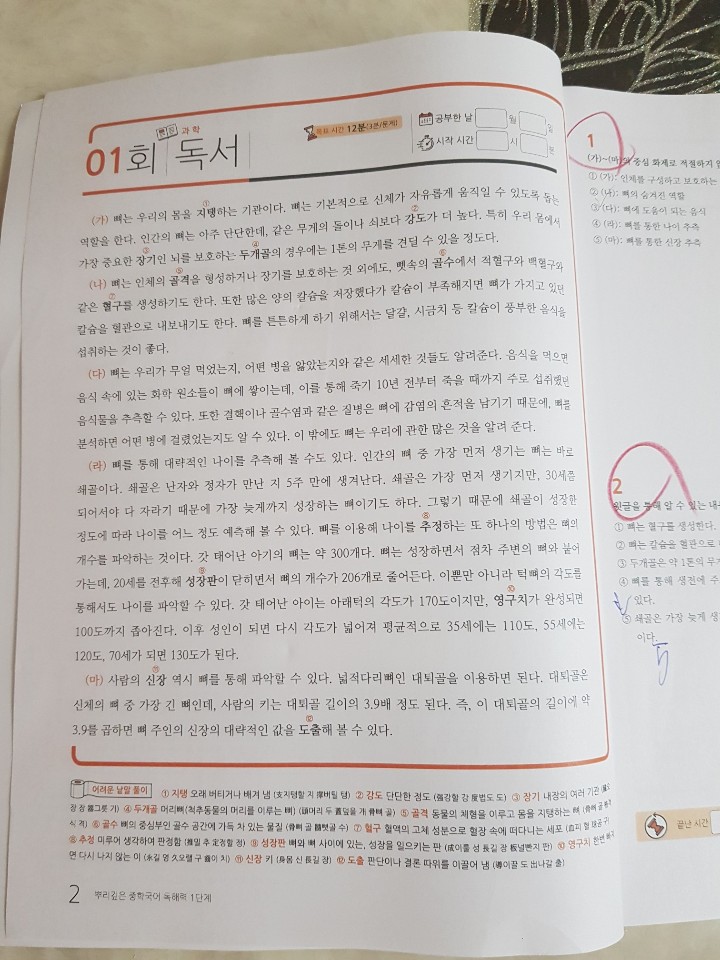 과학
01회 독서
목표 시간 12분(3분/문제)
공부한 날 월 일
시작 시간 시 분
(가) 뼈는 우리의 몸을 ①지탱하는 기관이다. 뼈는 기본적으로 신체가 자유롭게 움직일 수 있도록 돕는
역할을 한다. 인간의 뼈는 아주 단단한데, 같은 무게의 돌이나 쇠보다 ②강도가 더 높다. 특히 우리 몸에서
가장 중요한 ③장기인 뇌를 보호하는 ④두개골의 경우에는 1톤의 무게를 견딜 수 있을 정도다.
(나) 뼈는 인체의 ⑤골격을 형성하거나 장기를 보호하는 것 외에도, 뼛속의 ⑥골수에서 적혈구와 백혈구와
같은 ⑦혈구를 생성하기도 한다. 또한 많은 양의 칼슘을 저장했다가 칼슘이 부족해지면 뼈가 가지고 있던
칼슘을 혈관으로 내보내기도 한다. 뼈를 튼튼하게 하기 위해서는 달걀, 시금치 등 칼슘이 풍부한 음식을
섭취하는 것이 좋다.
(다) 뼈는 우리가 무얼 먹었는지, 어떤 병을 앓았는지와 같은 세세한 것들도 알려준다. 음식을 먹으면
음식 속에 있는 화학 원소들이 뼈에 쌓이는데, 이를 통해 죽기 10년 전부터 죽을 때까지 주로 섭취했던
음식물을 추측할 수 있다. 또한 결핵이나 골수염과 같은 질병은 뼈에 감염의 흔적을 남기기 때문에, 뼈를
분석하면 어떤 병에 걸렸었는지도 알 수 있다. 이 밖에도 뼈는 우리에 관한 많은 것을 알려 준다.
(라) 뼈를 통해 대략적인 나이를 추측해 볼 수도 있다. 인간의 뼈 중 가장 먼저 생기는 뼈는 바로
쇄골이다. 쇄골은 난자와 정자가 만난 지 5주 만에 생겨난다. 쇄골은 가장 먼저 생기지만, 30세쯤
되어서야 다 자라기 때문에 가장 늦게까지 성장하는 뼈이기도 하다. 그렇기 때문에 쇄골이 성장한
정도에 따라 나이를 어느 정도 예측해 볼 수 있다. 뼈를 이용해 나이를 ⑧추정하는 또 하나의 방법은 뼈의
개수를 파악하는 것이다. 갓 태어난 아기의 뼈는 약 300개다. 뼈는 성장하면서 점차 주변의 뼈와 붙어
가는데, 20세를 전후해 ⑨성장판이 닫히면서 뼈의 개수가 206개로 줄어든다. 이뿐만 아니라 턱뼈의 각도를
통해서도 나이를 파악할 수 있다. 갓 태어난 아이는 아래턱의 각도가 170도이지만, ⑩영구치가 완성되면
100도까지 좁아진다. 이후 성인이 되면 다시 각도가 넓어져 평균적으로 35세에는 110도, 55세에는
120도, 70세가 되면 130도가 된다.
(마) 사람의 ⑪신장 역시 뼈를 통해 파악할 수 있다. 넓적다리뼈인 대퇴골을 이용하면 된다. 대퇴골은
신체의 뼈 중 가장 긴 뼈인데, 사람의 키는 대퇴골 길이의 3.9배 정도 된다. 즉, 이 대퇴골의 길이에 약
3.9를 곱하면 뼈 주인의 신장의 대략적인 값을 ⑫도출해 볼 수 있다.
어려운 낱말 풀이 ① 지탱 오래 버티거나 배겨 냄 (支지탱할 지 撐버틸 탱) ② 강도 단단한 정도 (強강할 강 度법도 도) ③ 장기 내장의 여러 기관
장 장 器그릇 기) ④ 두개골 머리뼈(척추동물의 머리를 이루는 뼈) (頭머리 두 蓋덮을 개 骨뼈 골) ⑤ 골격 동물의 체형을 이루고 몸을 지탱하는 뼈 (骨뼈 골
식 격) ⑥ 골수 뼈의 중심부인 골수 공간에 가득 차 있는 물질 (骨뼈 골 髓뼛골 수) ⑦ 혈구 혈액의 고체 성분으로 혈장 속에 떠다니는 세포 (血피 혈 球공 구)
⑧ 추정 미루어 생각하여 판정함 (推밀 추 定정할 정) ⑨ 성장판 뼈와 뼈 사이에 있는, 성장을 일으키는 판 (成이룰 성 長길 장 板널빤지 판) ⑩ 영구치 한번
면 다시 나지 않는 이 (永길 영 久오랠 구 齒이 치) ⑪ 신장 키 (身몸 신 長길 장) ⑫ 도출 판단이나 결론 따위를 이끌어 냄 (導이끌 도 出나갈 출)
2 뿌리깊은 중학국어 독해력 1단계
1
(가)~(마)의 중심 화제로 적절하지 않
① (가): 인체를 구성하고 보호하는
② (나): 뼈의 숨겨진 역할
③ (다): 뼈에 도움이 되는 음식
④ (라): 뼈를 통한 나이 추측
⑤ (마): 뼈를 통한 신장 추측
2
윗글을 통해 알 수 있는 내용
① 뼈는 혈구를 생성한다.
② 뼈는 칼슘을 혈관으로
③ 두개골은 약 1톤의 무게
④ 뼈를 통해 생전에 주
있다.
⑤ 쇄골은 가장 늦게 생
이다.
끝난 시간